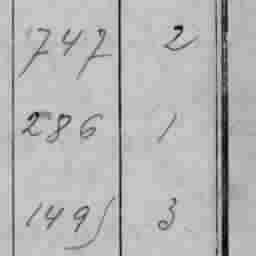 747 2
286 1
1495 3